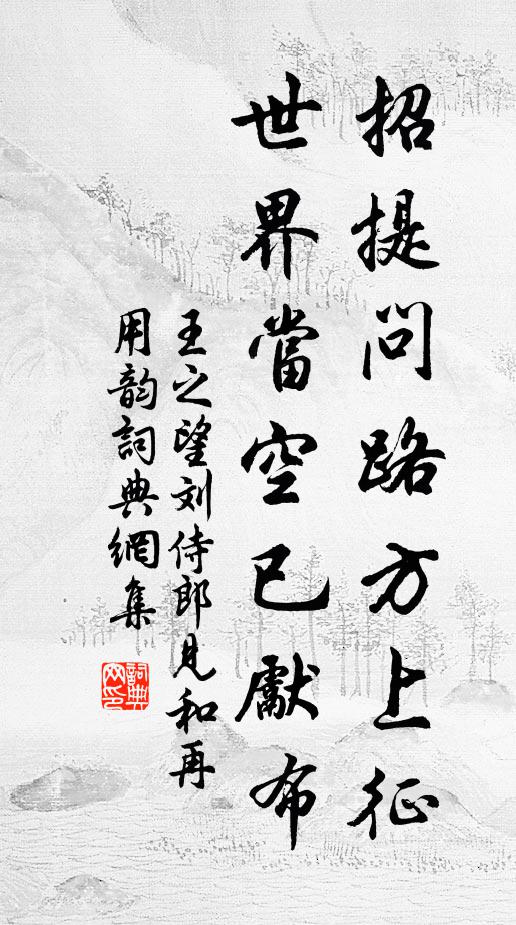 招提问路方上征
世界當空已獻布
王之望刘侍郎見和再
用韵詞典網集
詞典
网印